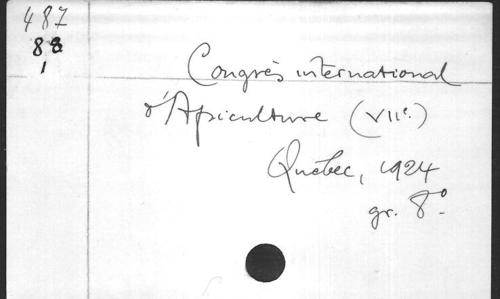 487
88
1
Congrès international
d'Apiculture (VIIe.)
Québec, 1924
gr. 8º.